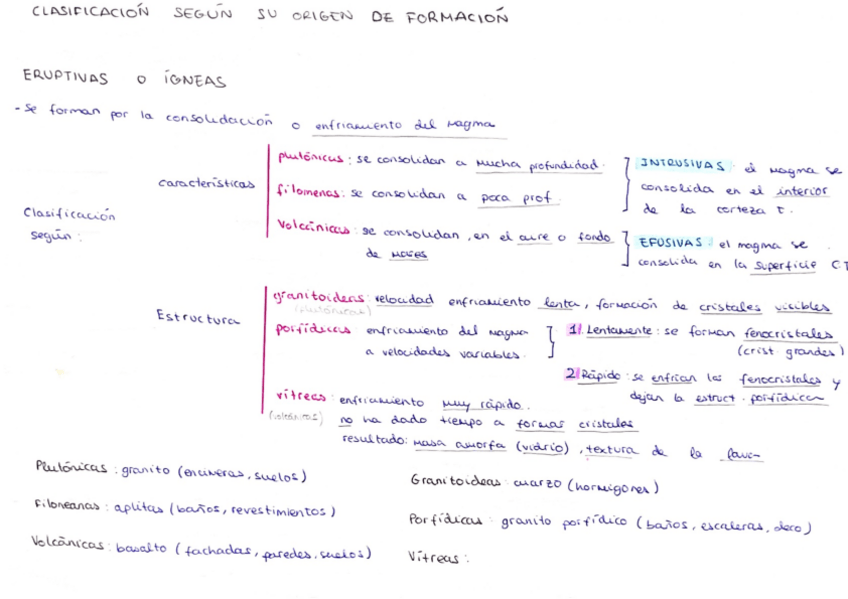 CLASIFICACIÓN SEGÚN SU ORIGEN DE FORMACIÓN
ERUPTIVAS O ÍGNEAS
- Se forman por la consolidación o enfriamiento del magma
Clasificación según:
características
plutónicas: se consolidan a mucha profundidad.
filomenas: se consolidan a poca prof.
INTRUSIVAS: el magma se
consolida en el interior
de la corteza T.
Volcánicas: se consolidan, en el aire o fondo
de mares
EFUSIVAS: el magma se
consolida en la superficie CT
Estructura
granitoideas: velocidad enfriamiento lenta, formación de cristales visibles
(plutónicas)
porfídicas enfriamiento del magma
a velocidades variables.
1) Lentamente: se forman fenocristales
(crist. grandes)
2) Rápido: se enfrían los fenocristales y
dejan la estruct. porfídica
vítreas: enfriamiento muy rápido.
(volcánicas) no ha dado tiempo a formar cristales
resultado: masa amorfa (vidrio), textura de la lava
Plutónicas: granito (encimeras, suelos)
Filoneanas: aplitas (baños, revestimientos)
Volcánicas: basalto (fachadas, paredes, suelos)
Granitoideas: cuarzo (hormigones)
Porfídicas: granito porfídico (baños, escaleras, deco)
Vítreas: